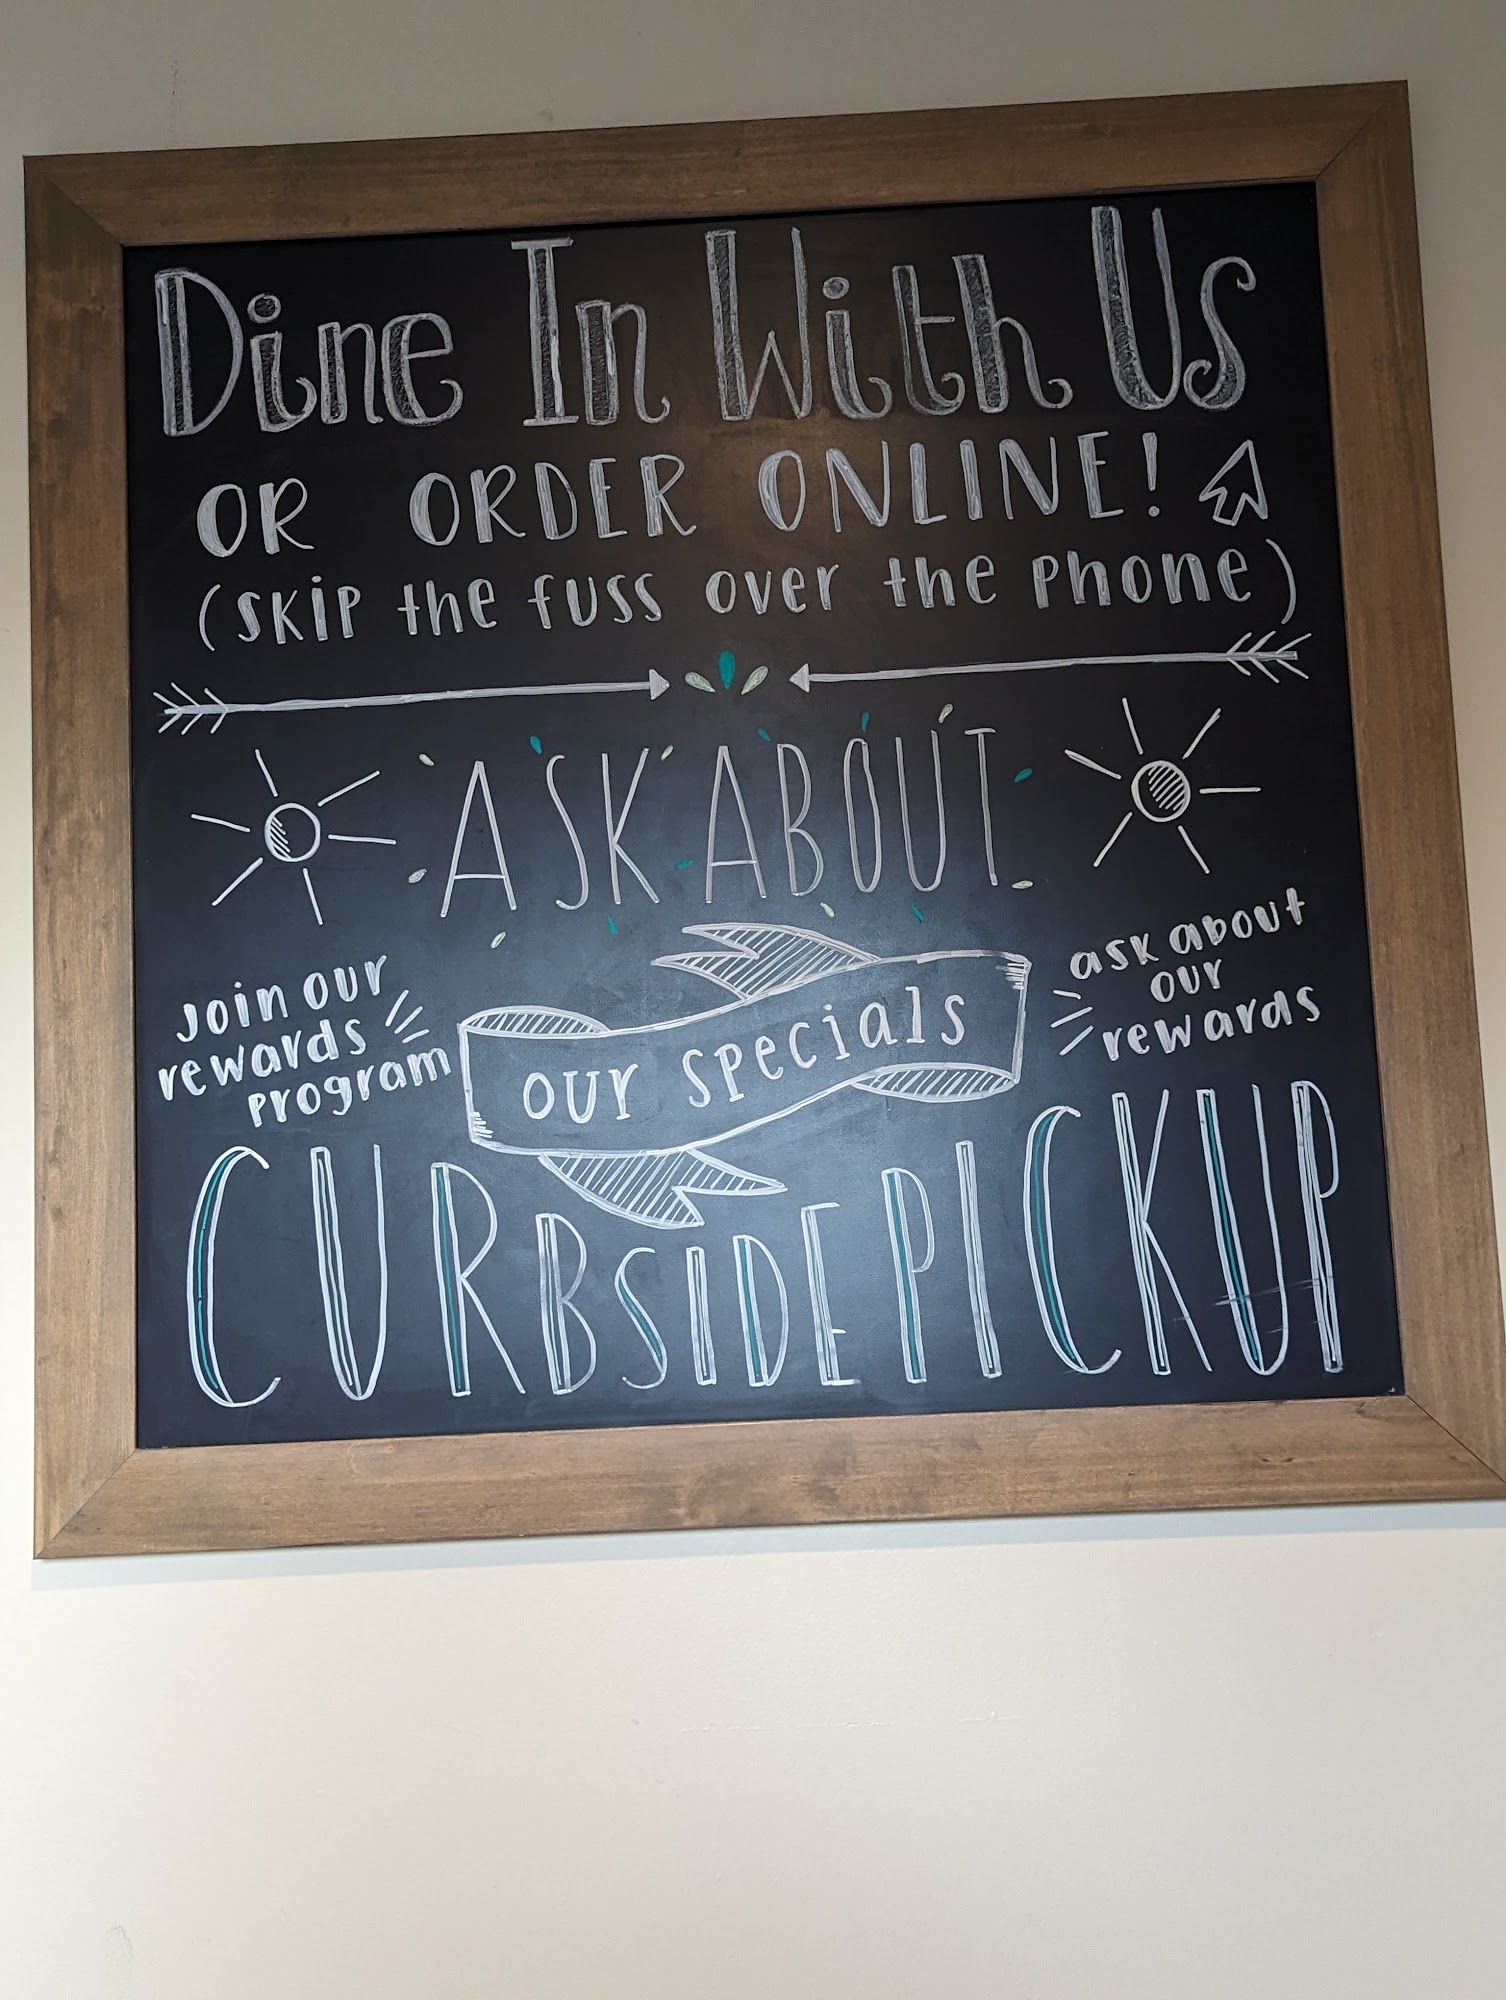 Dine In With Us
OR ORDER ONLINE!
(SKIP the fuss over the Phone)
ASK ABOUT
our specials
Join our
rewards
program
ask about
our
rewards
CURBSIDE PICKUP